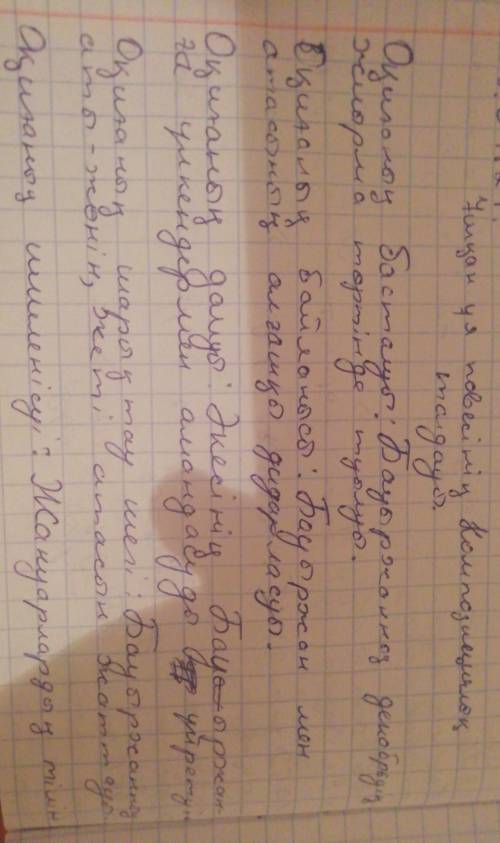 Ұшқан ұя повесінің композициялық
талдауы.
Оқиғаның басталуы: Бауыржанның декабрдің
жиырма төртінде туылуы.
Оқиғалық байланысы: Бауыржан мен
атасының алғашқы дидарласуы.
Оқиғаның дамуы: Әжесінің Бауыржан-
ға үлкендермен амандасуды үйретуі.
Оқиғаның шарықтау шегі: Бауыржанның
аты-жөнін, жеті атасын жаттауы
Оқиғаның шиеленісуі: Жануарлардың тілін